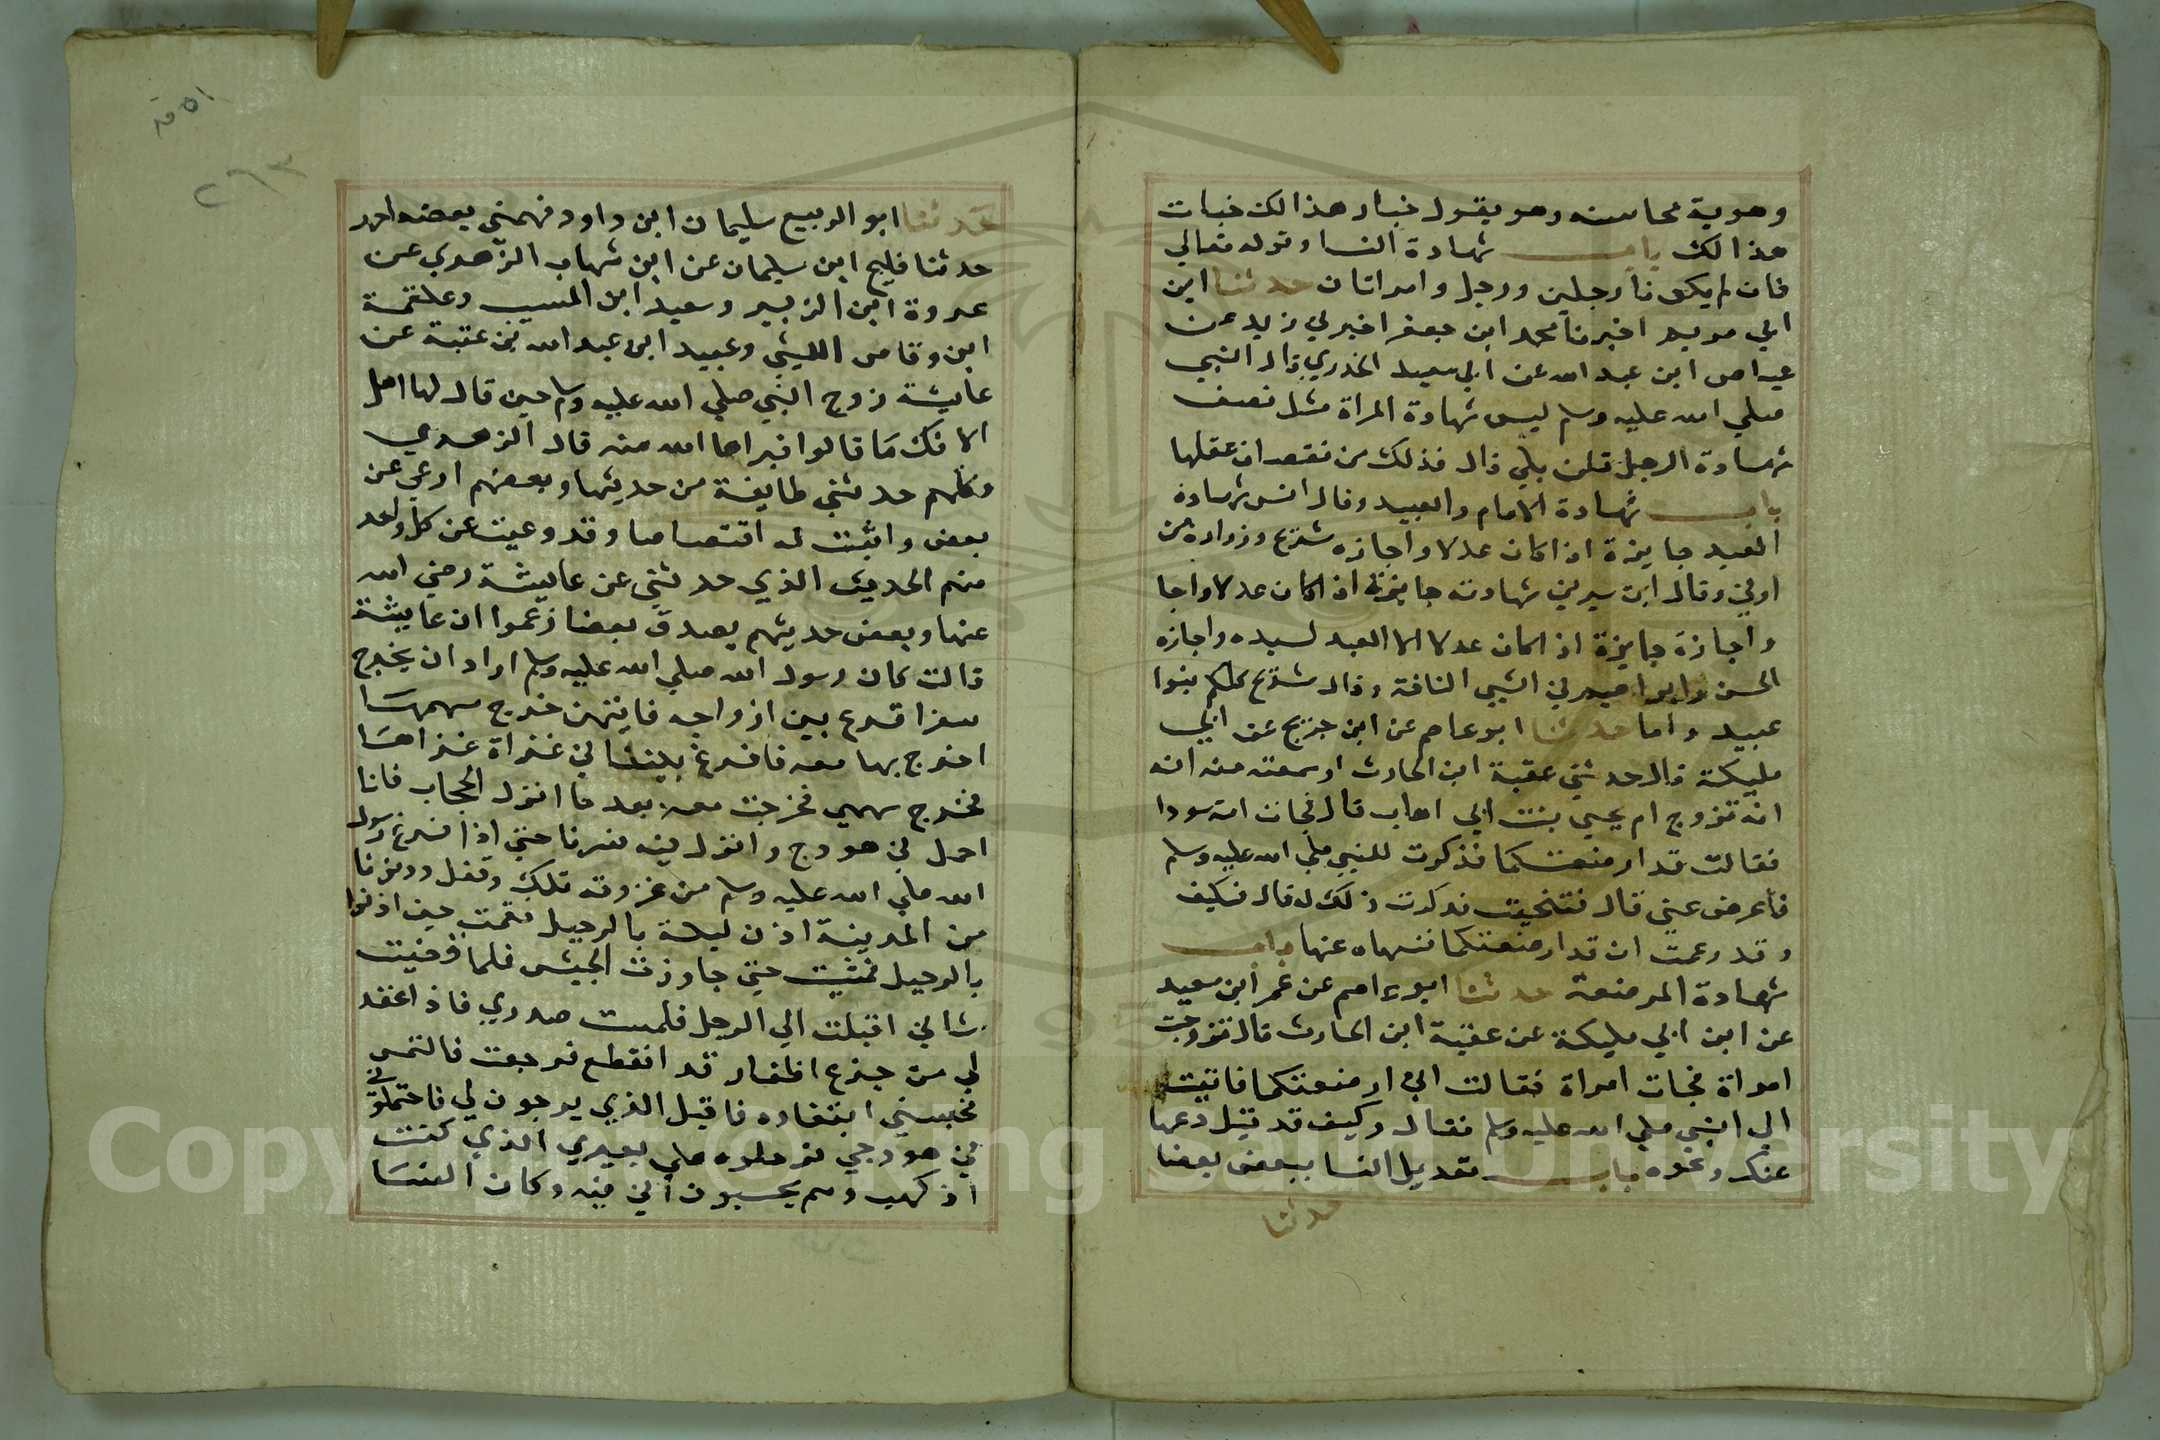 وهوية محاسنه وهو يقول خبات هذا لك خبات
هذا لك باب شهادة النسا وقوله تعالي
فان لم يكونا رجلين ورجل وامراتان حدثنا ابن
ابي مريم اخبرنا محمد ابن جعفر اخبرني زيد عن
عياض ابن عبد الله عن ابي سعيد الخدري قال النبي
صلي الله عليه وسلم ليس شهادة المراة مثل نصف
شهادة الرجل قلن بلي قال فذلك من نقصان عقلها
باب شهادة الامام والعبيد وقال انس شهادة
العبد جايزة اذا كان عدلا واجازه شريح وزراره بن
اوفي وقال ابن سيرين شهادته جايزة اذا كان عدلا واجا
واجازة جايزة اذا كان عدلا الا العبد لسيده واجازه
الحسن وابراهيم في الشي التافة وقال شريح كلكم بنوا
عبيد واما حدثنا ابو عاصم عن ابن جريج عن ابي
مليكة قال حدثني عقبة ابن الحارث او سمعته منه انه
انه تزوج ام يحيي بنت ابي اهاب قال فجات امة سودا
فقالت قد ارضعتكما فذكرت للنبي صلي الله عليه وسلم
فاعرض عني قال فتنحيت فذكرت ذلك له قال فكيف
وقد زعمت ان قد ارضعتكما فنهاه عنها باب
شهادة المرضعة حدثنا ابو عاصم عن عمر ابن سعيد
عن ابن ابي مليكة عن عقبة ابن الحارث قال تزوجت
امراة فجات امراة فقالت اني ارضعتكما فاتيت
الي النبي صلي الله عليه وسلم فقال وكيف قد قيل دعها
عنك ونحوه باب تعديل النسا ببعض بعضا
حدثنا
٥١ قد
٢٦٣
حدثنا ابو الربيع سليمان ابن داود فهمني بعضه احمد
حدثنا فليح ابن سليمان عن ابن شهاب الزهري عن
عروة ابن الزبير وسعيد ابن المسيب وعلقمة
ابن وقاص الليثي وعبيد ابن عبد الله بن عتبة عن
عايشة زوج النبي صلي الله عليه وسلم حين قال لها اهل
الافك ما قالوا فبراها الله منه قال الزهري
وكلهم حدثني طايفة من حديثها وبعضهم اوعي عن
بعض واثبت له اقتصاصا وقد وعيت عن كل واحد
منهم الحديث الذي حدثني عن عايشة رضي الله
عنها وبعض حديثهم يصدق بعضا زعموا ان عايشة
قالت كان رسول الله صلي الله عليه وسلم اراد ان يخرج
سفرا اقرع بين ازواجه فايتهن خرج سهمها
اخرج بها معه فاقرع بيننا في غزاة غزاها
فخرج سهمي فخرجت معه بعد ما انزل الحجاب فانا
احمل في هودج وانزل فيه فسرنا حتي اذا فرغ رسول
الله صلي الله عليه وسلم من غزوته تلك وقفل ودنونا
من المدينة اذن ليلة بالرحيل فقمت حين اذنوا
بالرحيل فمشيت حتي جاوزت الجيش فلما قضيت
شاني اقبلت الي الرحل فلمست صدري فاذا عقد
لي من جزع اظفار قد انقطع فرجعت فالتمس
فحبسني ابتغاوه فاقبل الذي يرحون لي فاحتملو
في هودجي فرحلوه علي بعيري الذي كنت
اركب وهم يحسبون اني فيه وكان النسا
Copyright © King Saud University
1957